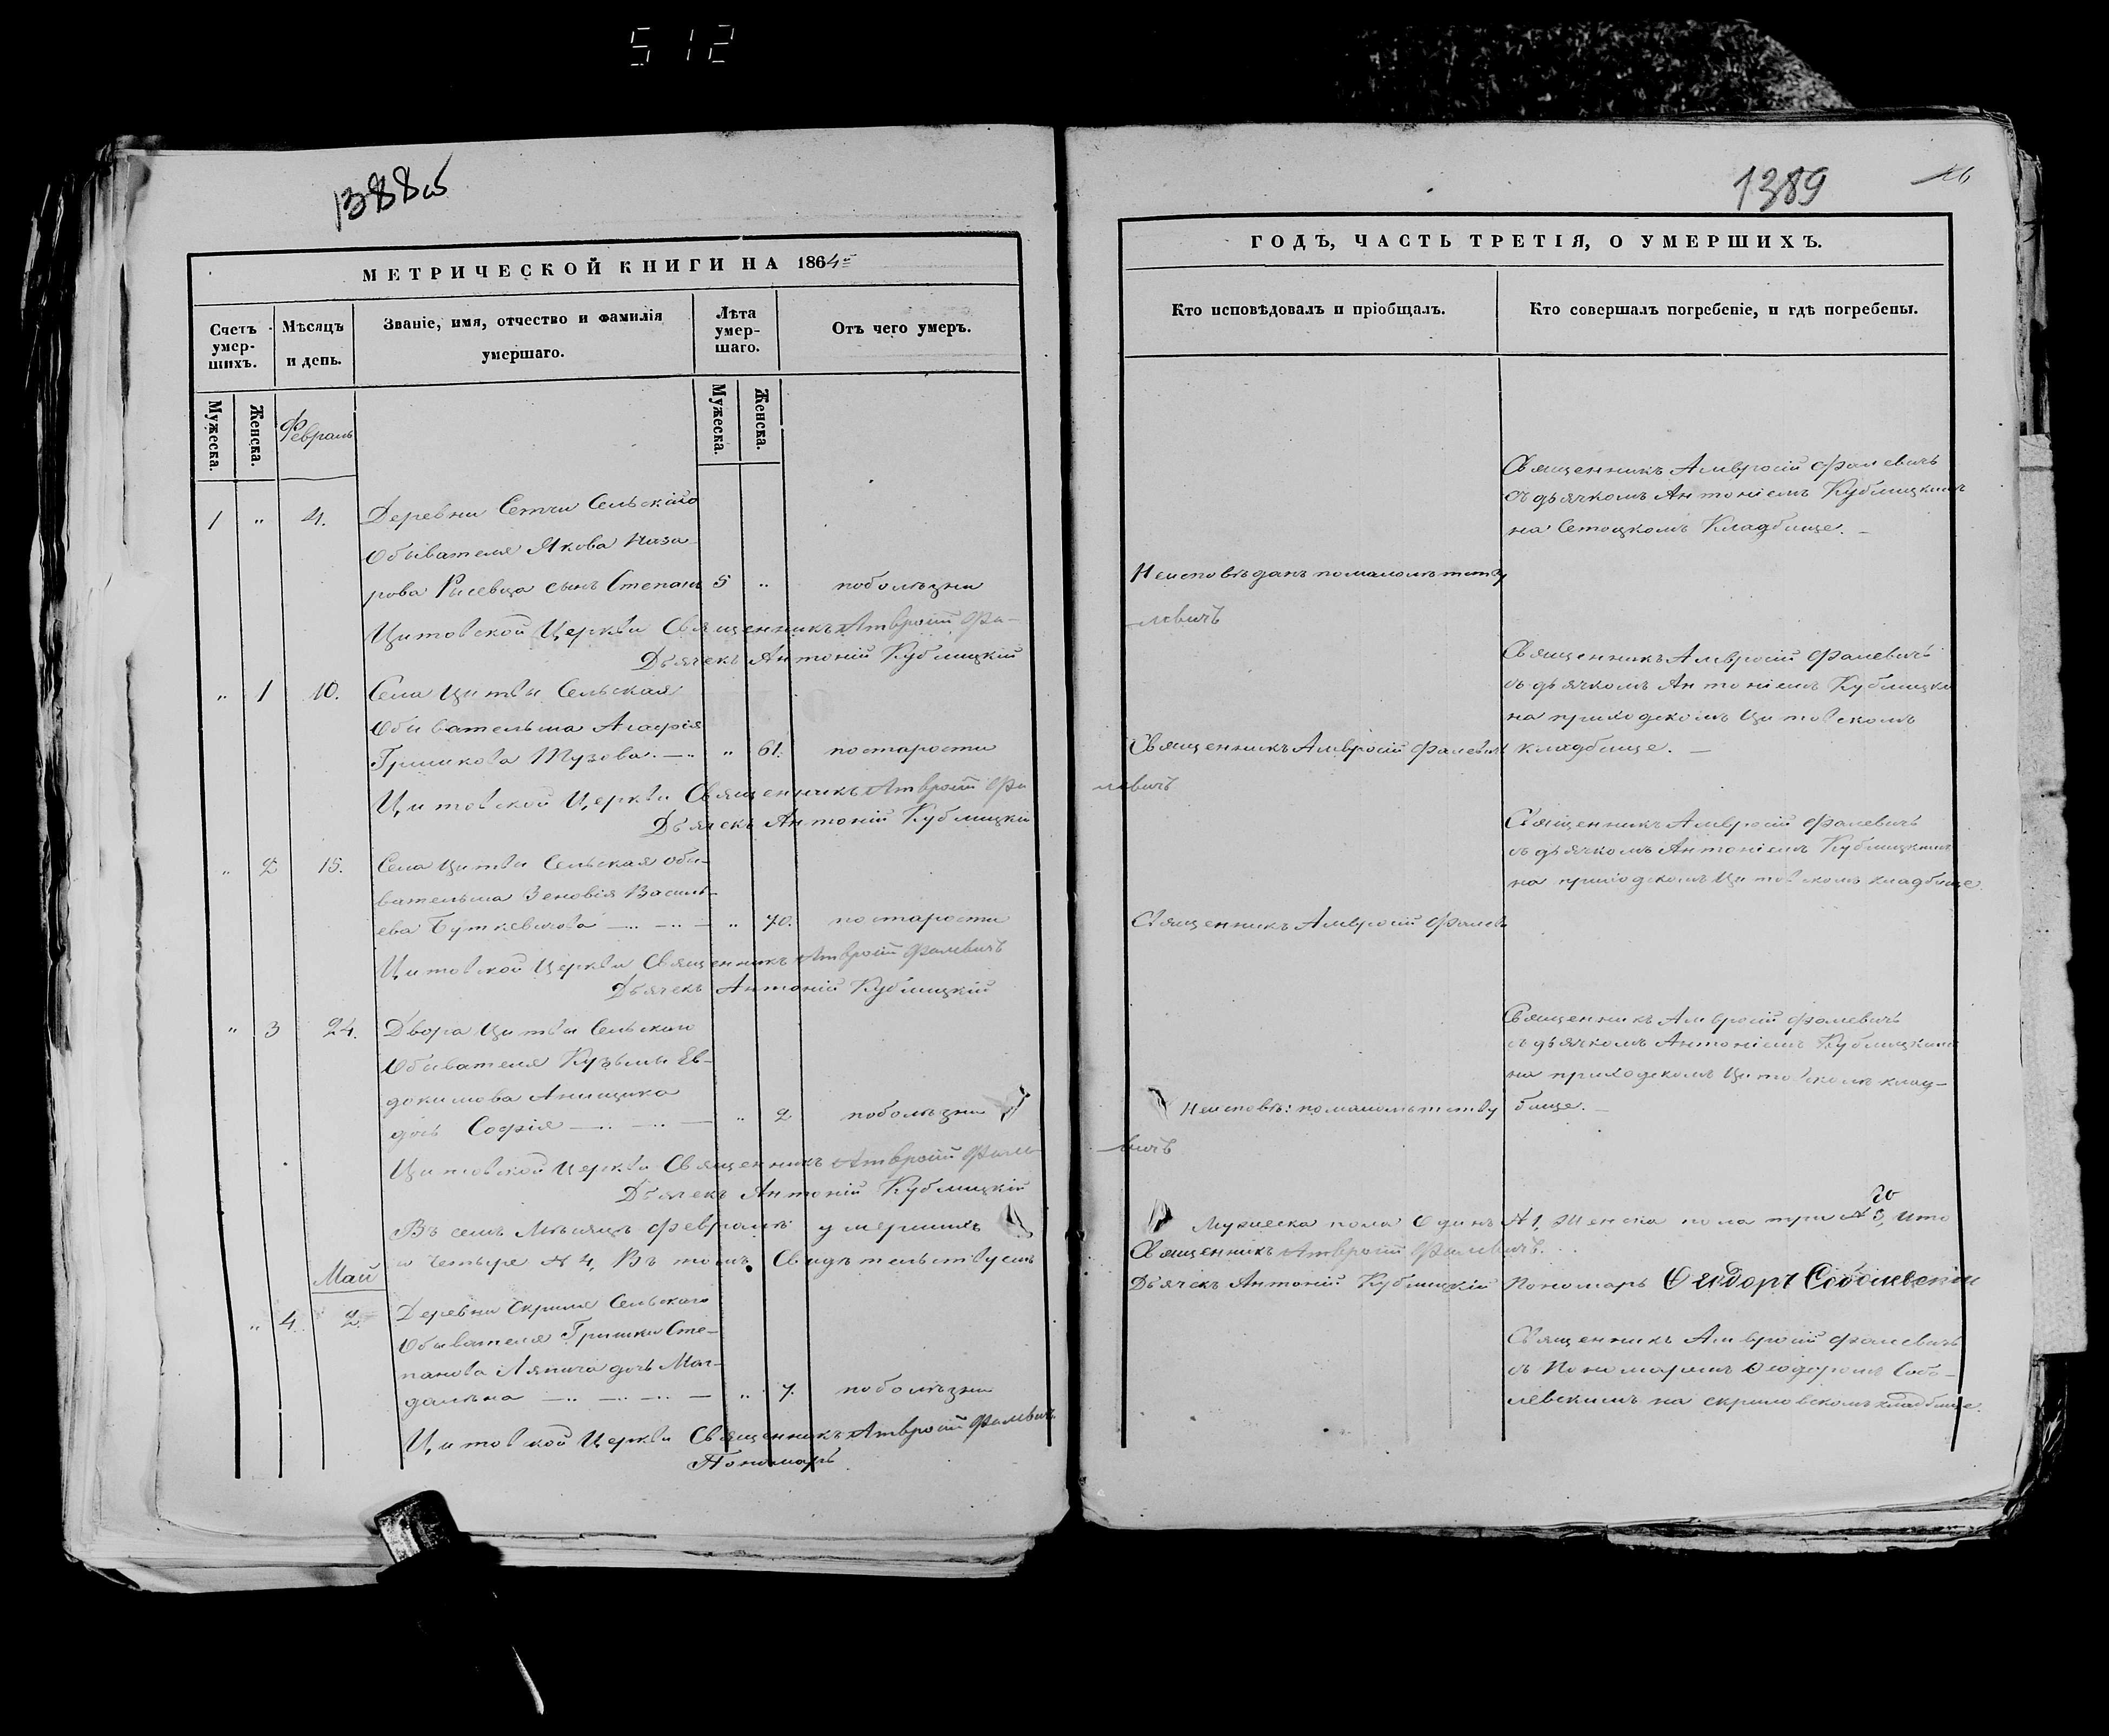 512
1388об
МЕТРИЧЕСКОЙ КНИГИ НА 1864й
Счетъ умер-шихъ.
Мѣсяцъ и день.
Званіе, имя, отчество и фамилія умершаго.
Лѣта умер-шаго.
Отъ чего умеръ.
Мужеска.
Женска.
Февраль
Мужеска.
Женска.
1 " 4. Деревни Сетчи Сельскаго
Обывателя Якова Наза-
рова сынъ Степанъ 5 " по болѣзни
Цитовской Церкви Священникъ Амвросій Фа-
Дьячекъ Антоній Кублицкій
" 1 10. Села Цитвы Сельская
Обывательша Агафія
Гришкова Тузова. " 61. по старости
Цитовской Церкви Священникъ Амвросій Фа
Дьячекъ Антоній Кублицкій
" 2 15. Села Цитвы Сельская обы-
вательша Зеновія Василь-
ева Буткевичова " 70. по старости
Цитовской Церкви Священникъ Амвросій Фалевичъ
Дьячекъ Антоній Кублицкій
" 3 24. Двора Цитвы Сельскаго
Обывателя Кузьмы Ев-
докимова
дочь Софія " 2 по болѣзни
Цитовской Церкви Священникъ Амвросій Фале
Дьячекъ Антоній Кублицкій
Въ семъ Мѣсяцѣ Февралѣ умершихъ
Четыре № 4, Въ томъ Свидѣтельствуемъ
Май
" 4. 2. Деревни Скрыля Сельскаго
Обывателя Гришки Сте-
панова Ляпича дочь Маг-
далѣна " 7. по болѣзни
Цитовской Церкви Священникъ Амвросій Фалевичъ
Пономарь
1389
ГОДЪ, ЧАСТЬ ТРЕТІЯ, О УМЕРШИХЪ.
Кто исповѣдовалъ и пріобщалъ.
Кто совершалъ погребеніе, и гдѣ погребены.
Священникъ Амвросій Фалевичъ
съ дьячкомъ Антоніемъ Кублицкимъ
на Сетоцкомъ Кладбище.
Неисповѣданъ по малолѣтству
левичъ
Священникъ Амвросій Фалевичъ
съ дьячкомъ Антоніемъ Кублицки
на приходскомъ Цитовскомъ
Священникъ Амвросій Фалевичъ кладбище.
левичъ
Священникъ Амвросій Фалевичъ
съ дьячкомъ Антоніемъ Кублицкимъ
на приходскомъ Цитовскомъ кладбище
Священникъ Амвросій Фалев
Священникъ Амвросій Фалевичъ
съ дьячкомъ Антоніемъ Кублицкимъ
на приходскомъ Цитовскомъ клад-
Неисповѣ: по малолѣтству бище.
вичъ
Мужеска пола Одинъ №1, Женска пола три №3, что
Священникъ Амвросій Фалевичъ.
Дьячекъ Антоній Кублицкій Пономарь Ѳеодоръ Соболевскій
Священникъ Амвросій Фалевичъ
съ Пономаремъ Ѳеодоромъ Собо-
левскимъ на скрыловскомъ кладбище.